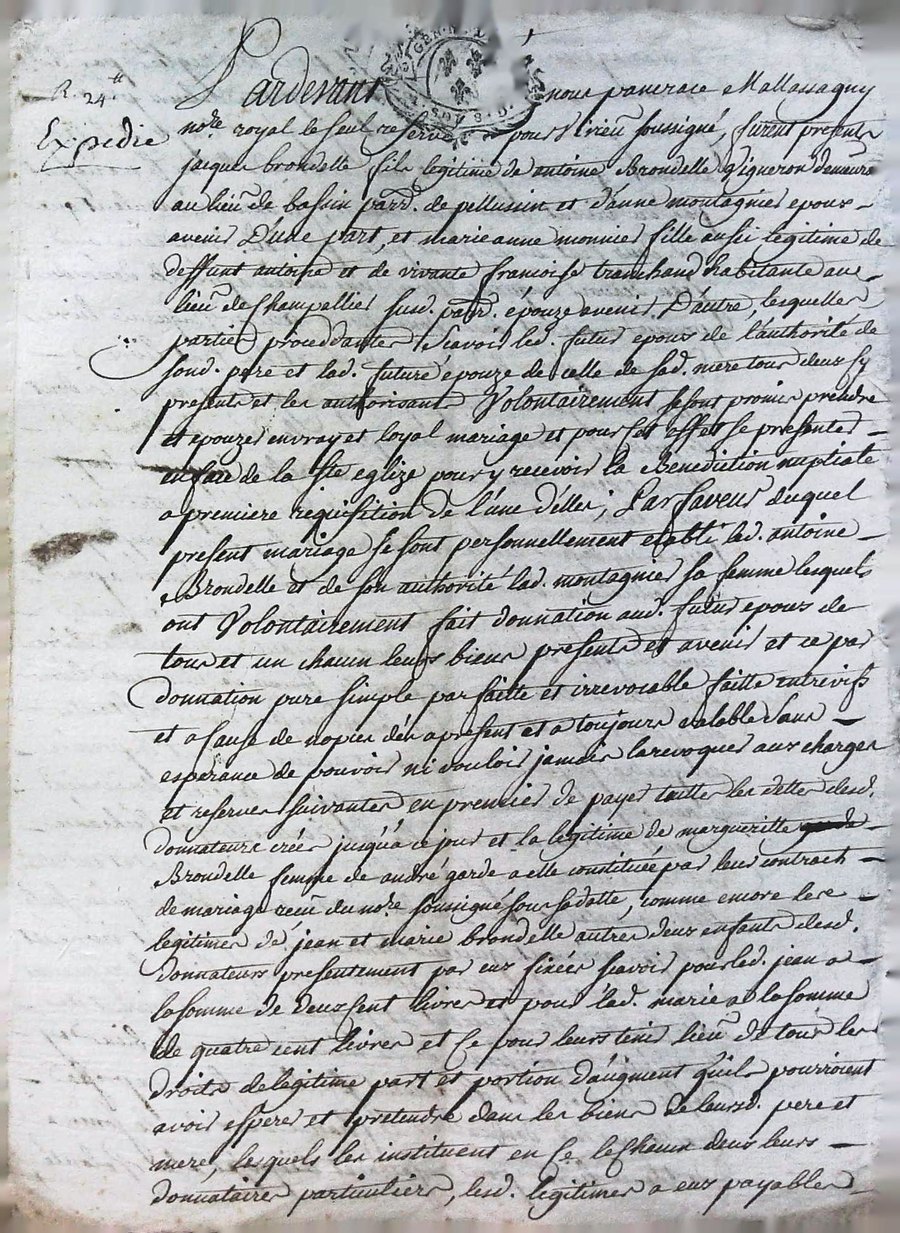 R. 24 tt
Expedie
Pardevant nous pancrace Mallassagny
not.re royal le seul reservé pour Virieu soussigné, furent présents
jacques brondelle fils légitime de antoine Brondelle Vigneron demeurant
au lieu de bassin parr. de pellussin et d'anne montagnier epoux
avenir D'une part, et marie anne monnier fille aussi légitime de
deffunt antoine et de vivante francoise tranchand habitante au
lieu de Champellier susd. parr. épouze avenir D'autre, lesquelles
parties proceddantes Scavoir led. futur epoux de l'authorité de
sond. pere et lad. future épouze de celle de sad. mere tous deux sy
presents et les authorisants Volontairement se sont promis prendre
et epouzer en vray et loyal mariage et pour cet effet se presenter
en face de la Ste eglize pour y recevoir la Benediction nuptiale
a premiere requisition de l'une d'elles; Par faveur duquel
present mariage se sont personnellement etabli led. antoine
Brondelle et de son authorité lad. montagnier sa femme lesquels
ont Volontairement fait donnation aud. futur epoux de
tous et un chacun leurs biens presents et avenir et ce par
donnation pure simple parfaitte et irrevocable faitte entrevifs
et a cause de nopces dès apresent et a toujours valable sans
esperance de pouvoir ni vouloir jamais la revoquer aux charges
et reserves suivantes en premier de payer touttes les dettes desd.
donnateurs crées jusqu'a ce jour et la légitime de margueritte
Brondelle femme de andré garde a elle constituée par leur contract
de mariage receu du not.re soussigné sous sa datte, comme encore les
legitimes de jean et marie brondelle autres deux enfants desd.
donnateurs presentement par eux fixées scavoir pour led. jean a
la somme de deux cent livres et pour lad. marie a la somme
de quatre cent livres et ce pour leurs tenir lieu de tous les
droits de légitime part et portion d'augment qu'ils pourroient
avoir esperer et prétendre dans les biens de leursd. pere et
mere, lesquels les instituent en ce le chacun deux leurs
donnataires particuliers, lesd. légitimes a eux payables